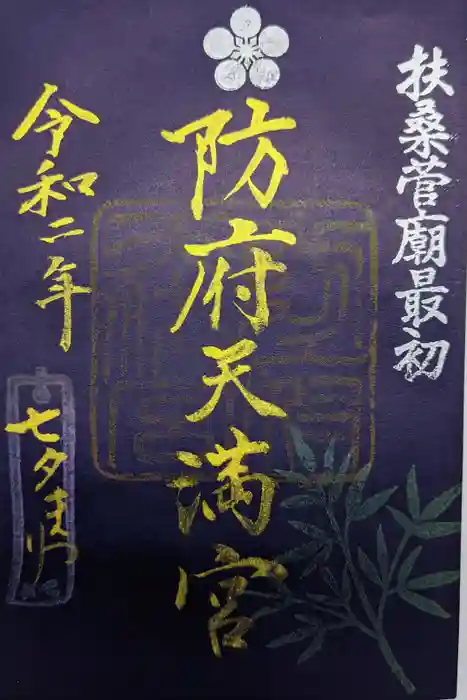 扶桑菅廟最初
防府天満宮
令和二年
七夕まつり